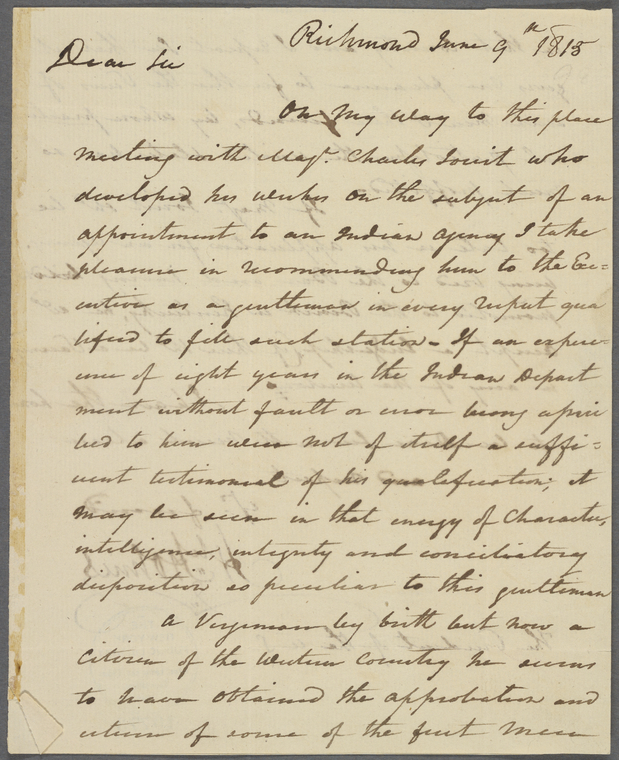 Richmond June 9th 1815
Dear Sir
On my way to this place
meeting with Majr. Charles Jouit who
developed his wishes on the subject of an
appointment to an Indian agency I take
pleasure in recommending him to the Exe=
cutive as a gentleman in every respect qua
lified to fill such station – If an experi=
ence of eight years in the Indian Depart
ment without fault or error being ascri
bed to him were not of itself a suffi=
cient testimonial of his qualification; it
may be seen in that energy of Character,
intelligence, integrity and conciliatory
disposition so peculiar to this gentleman
A Virginian by birth but now a
Citizen of the Western Country he seems
to have obtained the approbation and
esteem of some of the first Men